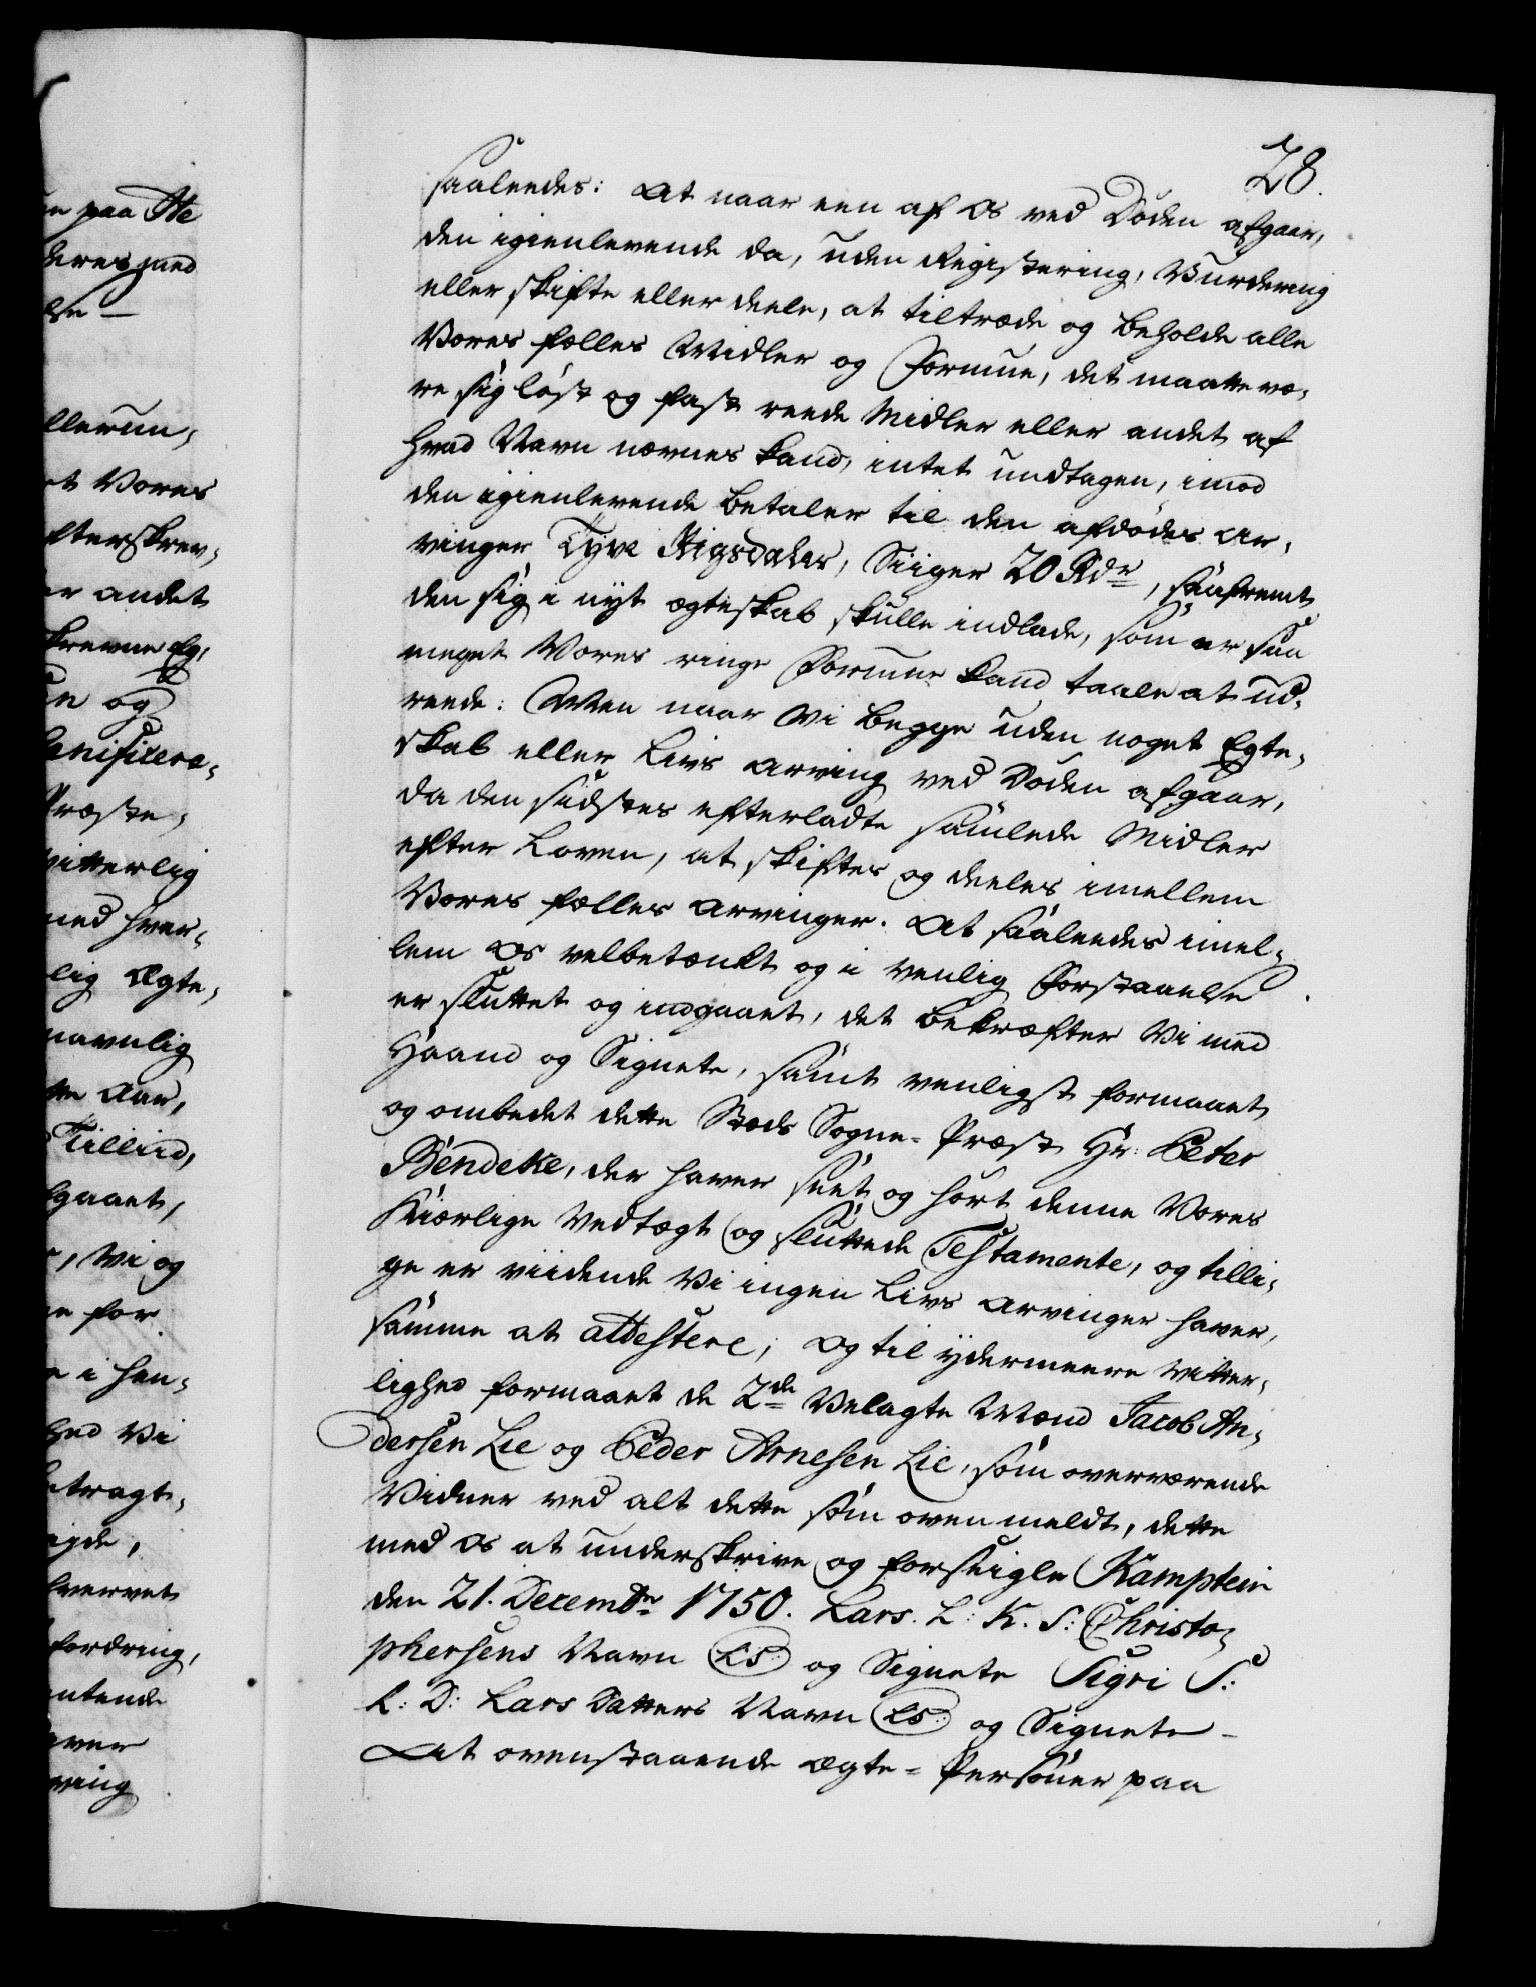 28.
saaleedes: At naar een af Os ved Døden afgaar,
den igienlevende da, uden Registering, Vurdering
eller skifte eller deele, at tiltræde og beholde alle
Vores fælles Midler og Formue, det maatte væ,
re sig løst og fast reede Midler eller andet af
hvad Navn nævnes kand, intet undtagen, imod
den igienlevende betaler til den afdødes Ar,
vinger Tyve Rigsdaler, Siiger 20 Rdr, saafremt
den sig i nyt ægteskab skulle indlade, som er saa
meget Vores ringe Formue kand taale at ud,
reede: Men naar Vi begge uden noget Egte,
skab eller Livs Arving ved Døden afgaar,
da den sidstes efterladte samlede Midler
efter Loven, at skiftes og deeles imellem
Vores fælles Arvinger. At saaleedes imel,
lem Os velbetænkt og i venlig Forstaaelse
er sluttet og indgaaet, det bekræfter Vi med
Haand og Signete, samt venligst formaaet
og ombedet dette Stæds Sogne-Præst Hr: Peter
Bendeke, der haver seet og hørt denne Vores
Kiærlige Vedtægt og sluttede Testamente, og tilli,
ge er viidende Vi ingen Livs Arvinger haver,
samme at attestere; Og til ydermeere Vitter,
lighed formaaet de 2de Velagte Mænd Jacob An,
dersen Lie og Peder Arnesen Lie, som overværende
Vidner ved alt dette som oven meldt, dette
med Os at underskrive og forseigle Kamptein
den 21. Decembr 1750. Lars. L: K. S: Christo,
phersens Navn LS. og Signete Sigri S:
L: D: Lars Datters Navn LS. og Signete
At ovenstaaende Ægte-Personer paa